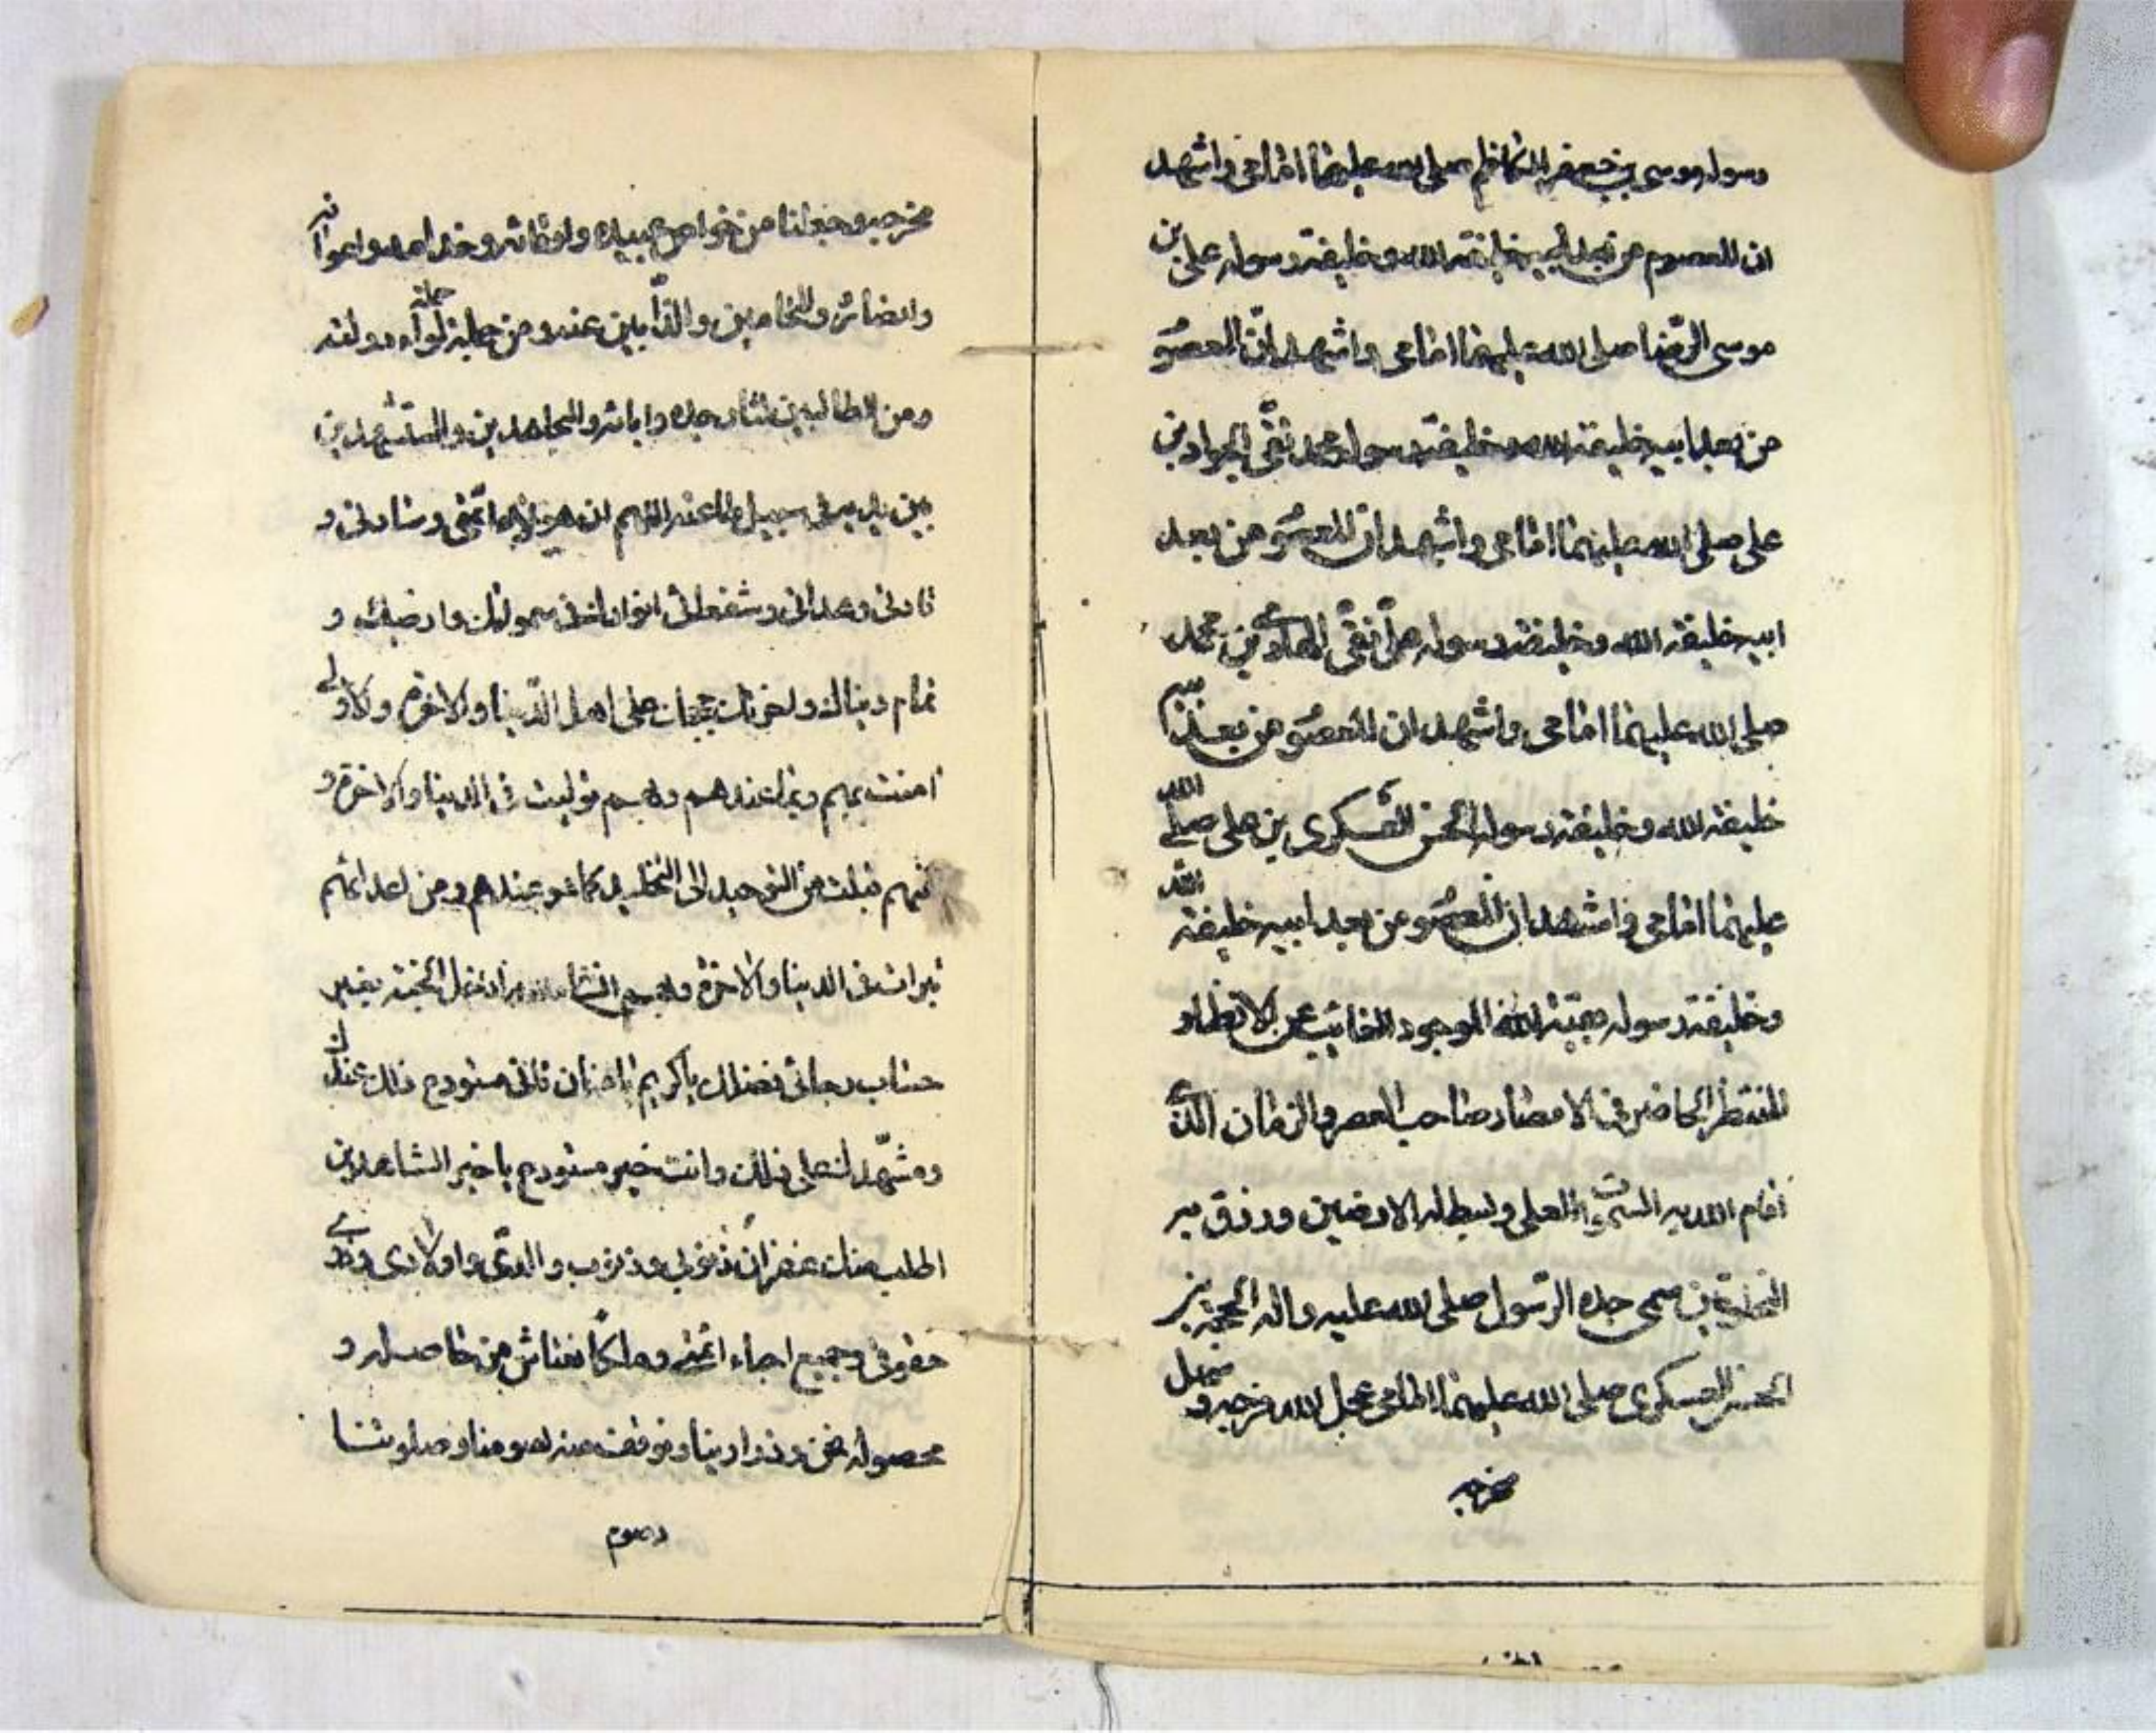 رسوله موسى بن جعفر الكاظم صلى الله عليهما امامى واشهد
ان المعصوم من بعد ابيه خليفة الله وخليفة رسوله على بن
موسى الرّضا صلى الله عليهما امامى واشهد انّ المعصوم
من بعد ابيه خليفة الله وخليفة رسوله محمد تقّى الجواد بن
على صلى الله عليهما امامى واشهد ان المعصوم من بعد
ابيه خليفة الله وخليفة رسوله على نقّى الهادى بن محمد
صلى الله عليهما امامى واشهد ان المعصوم من بعد ابيه
خليفة الله وخليفة رسوله الحسن العسكرى بن على صلى الله
عليهما امامى واشهد ان المعصوم من بعد ابيه خليفة الله
وخليفة رسوله بقيّة الله الموجود الغائب عن الانظار
المنتظر الحاضر فى الامصار صاحب العصر والزمان الذى
اقام الله به السموات العلى وبسط له الارضين ورزق به
المخلوقين سمى جده الرّسول صلى الله عليه واله الحجة بن
الحسن العسكرى صلى الله عليهما امامى عجل الله فرجه وسهل
مخرجه
مخرجه وجعلنا من خواص عبيده وارقائه وخدامه واعوانه
وانصاره والمحامين والذّابين عنه ومن حملة لواء دولته
ومن الطالبين لثار جده وابائه والمجاهدين والمستشهدين
بين يديه فى سبيل طاعته اللهم ان هؤلاء ائمّتى وسادتى و
قادتى وهداتى وشفعائى انوارك فى سمواتك وارضيك و
تمام دنياك واخرتك حججك على اهل الدّنيا والاخرة والاولى
امنت بهم وبما عندهم وبهم توليت فى الدنيا والاخرة و
منهم قبلت من التوحيد الى التخليد كما هو عندهم ومن اعدائهم
تبرات فى الدنيا والاخرة وبهم انشاءالله ادخل الجنة بغير
حساب رجائى فضلك ياكريم يامنان فانى مستودع ذلك عندك
ومشهّدك على ذلك وانت خير مستودع ياخير الشاهدين
اطلب منك غفران ذنوبى وذنوب والدىّ واولادى وذوى
حقوقى وجميع احباء ائمتى وملكاً نعتاش من حاصله و
محصوله نحن وذرارينا وتوفقنا منه لصومنا وصلوتنا
وصوم